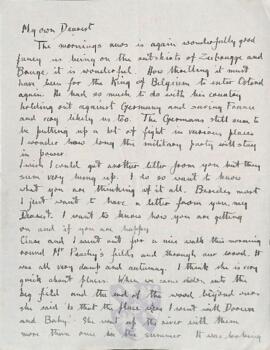 My own Dearest
The mornings news is again wonderfully good
fancy us being on the outskirts of Zeebrugge and
Bruge, it is wonderful. How thrilling it must
have been for the King of Belgium to enter Ostend
again. He had so much to do with his country
holding out against Germany and saving France
and very likely us too. The Germans still seem to
be putting up a bit of fight in various places
I wonder how long the military party will stay
in power.
I wish I could get another letter from you but they
seem very hung up. I do so want to know
what you are thinking of it all. Besides most
I just want to have a letter from you, my
Dearest. I want to know how you are getting
on and if you are happy
and I went out for a nice walk this morning
round Mr fields and through our wood. It
was all very damp and autumny. I think she is very
quick about places. When we came down into the
big field and the end of the wood beyond ours
she said to that the place was I went with Doreen
and Baby. She went up the river with them
more than once in the summer. It was looking